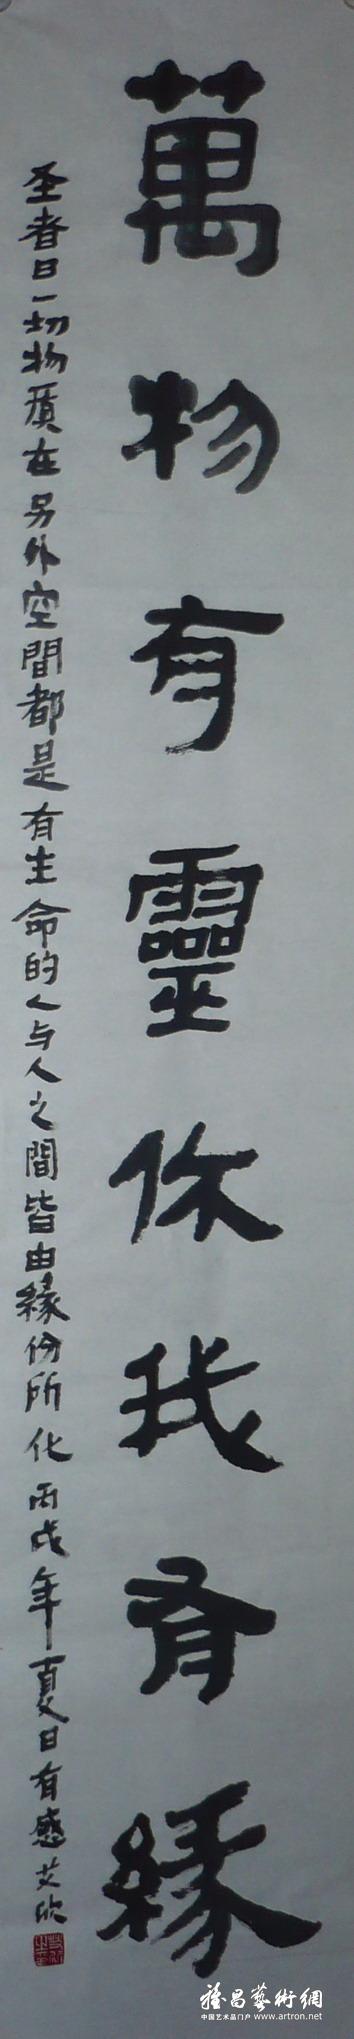 萬物有靈你我有緣
圣者曰一切物質在另外空間都是有生命的人与人之間皆由緣份所化丙戌年夏日有感艾欣
雅昌藝術網
中国艺术品门户 www.artron.net